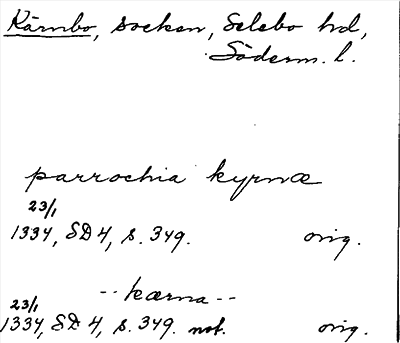 Kärnbo, socken, Selebo hd,
Söderm. l.
parrochia kyrnæ
23/1
1334, SD 4, s. 349. orig.
-- kærna --
23/1
1334, SD 4, s. 349. not. orig.